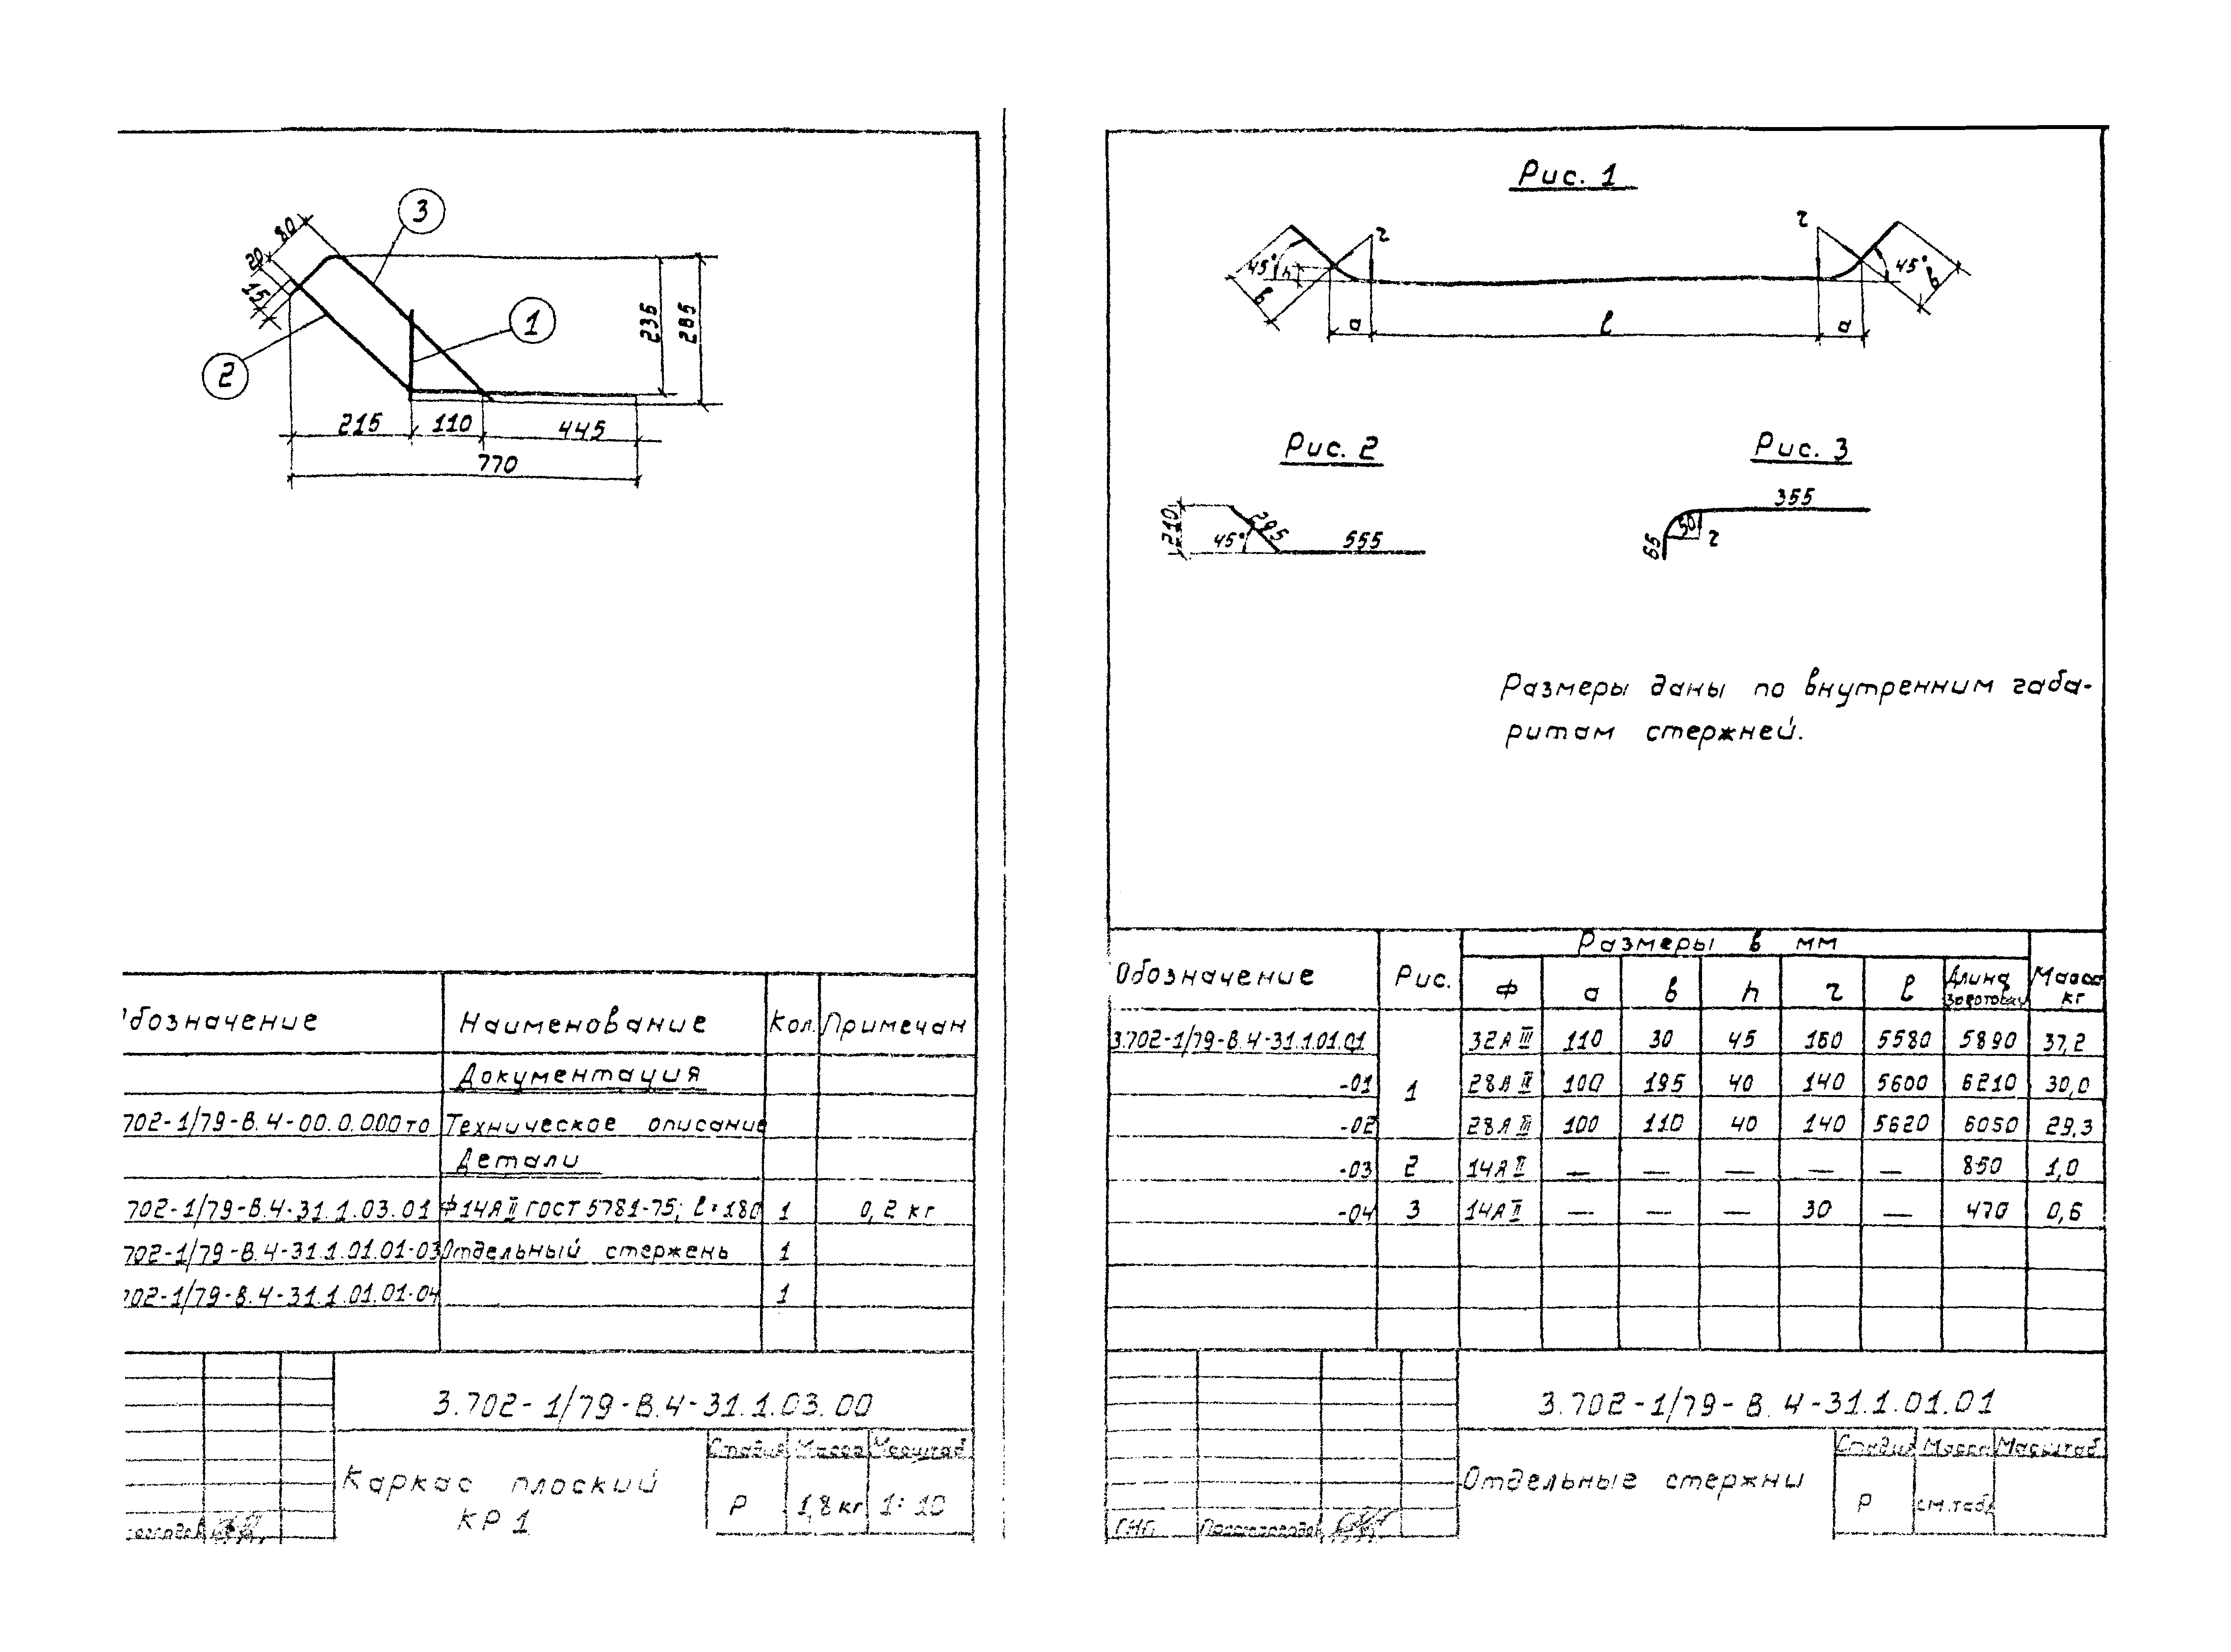 3
80
20
15
1
2
235
285
215 110 445
770
Обозначение Наименование Кол. Примечан
Документация
702-1/79-В.4-00.0.000то Техническое описание
Детали
702-1/79-В.4-31.1.03.01 Ф14АII ГОСТ 5781-75; l=180 1 0,2 кг
702-1/79-В.4-31.1.01.01-03 Отдельный стержень 1
702-1/79-В.4-31.1.01.01-04 1
3.702-1/79-В.4-31.1.03.00
Каркас плоский
КР1
Стадия Масса Масштаб
Р 1,8 кг 1:10
Рис. 1
r r
45° h 45°
в в
а l а
Рис. 2 Рис. 3
210 295 45° 555
355
50
65 r
Размеры даны по внутренним габа-
ритам стержней.
Обозначение Рис. Размеры в мм Масса кг
Ф а в h r l Длина заготовки
3.702-1/79-В.4-31.1.01.01 32АIII 110 30 45 160 5580 5890 37,2
-01 1 28АII 100 195 40 140 5600 6210 30,0
-02 28АIII 100 110 40 140 5620 6050 29,3
-03 2 14АII — — — — — 850 1,0
-04 3 14АII — — — 30 — 470 0,6
3.702-1/79-В.4-31.1.01.01
Отдельные стержни
Стадия Масса Масштаб
Р см.табл
ГИП